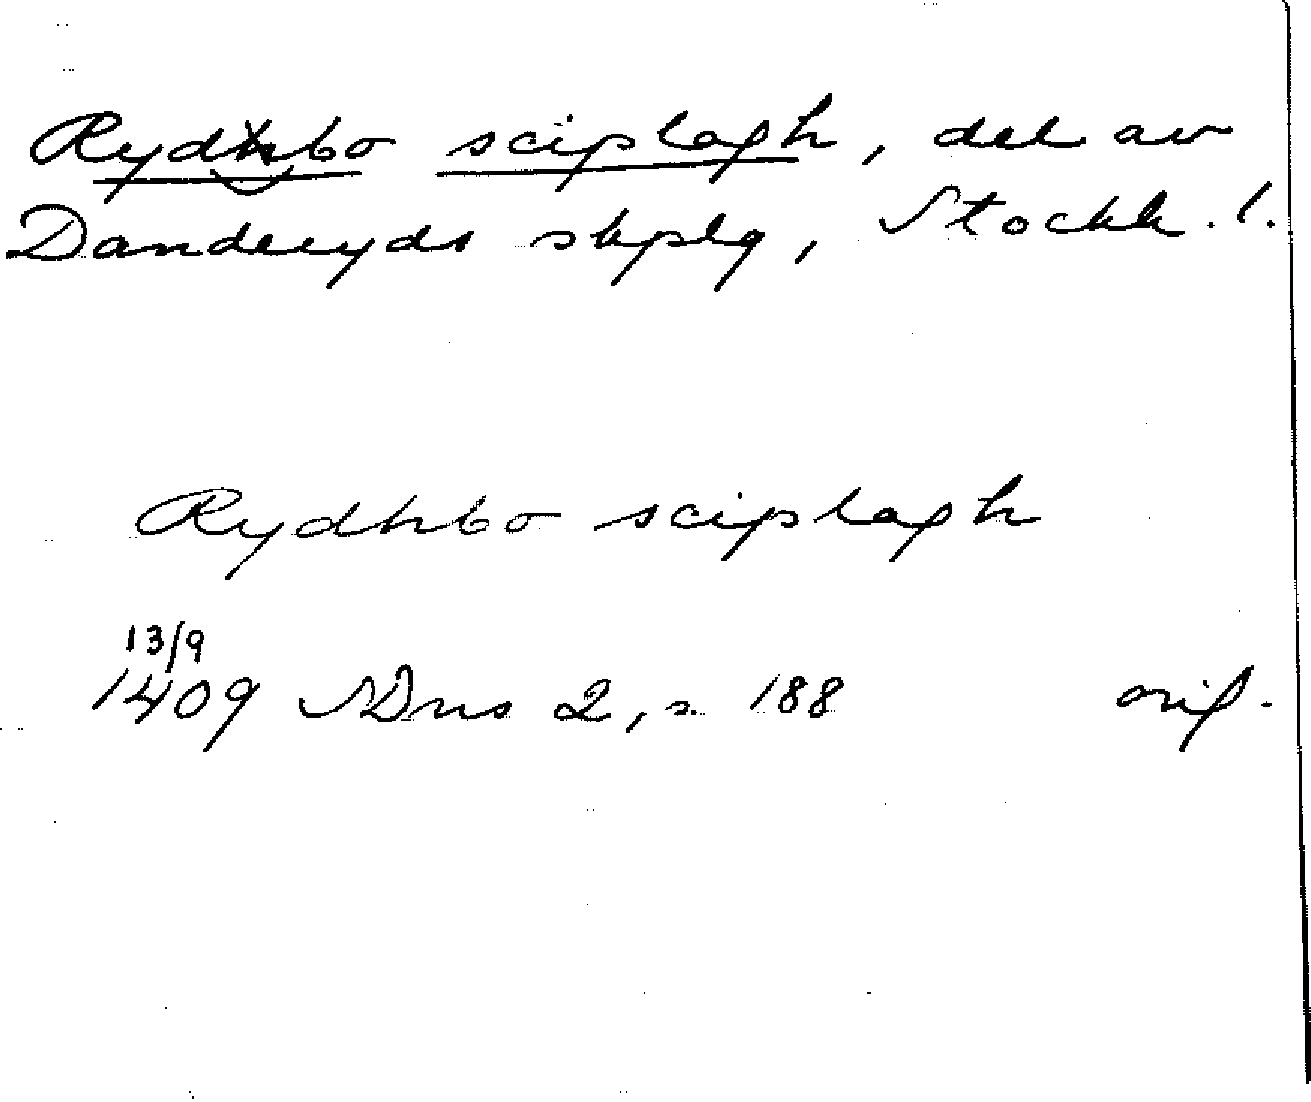 Rydhbo sciplagh, del av
Danderyds skplg, Stockh. l.
Rydhbo sciplagh
13/9
1409 SDns 2, s. 188 orig.